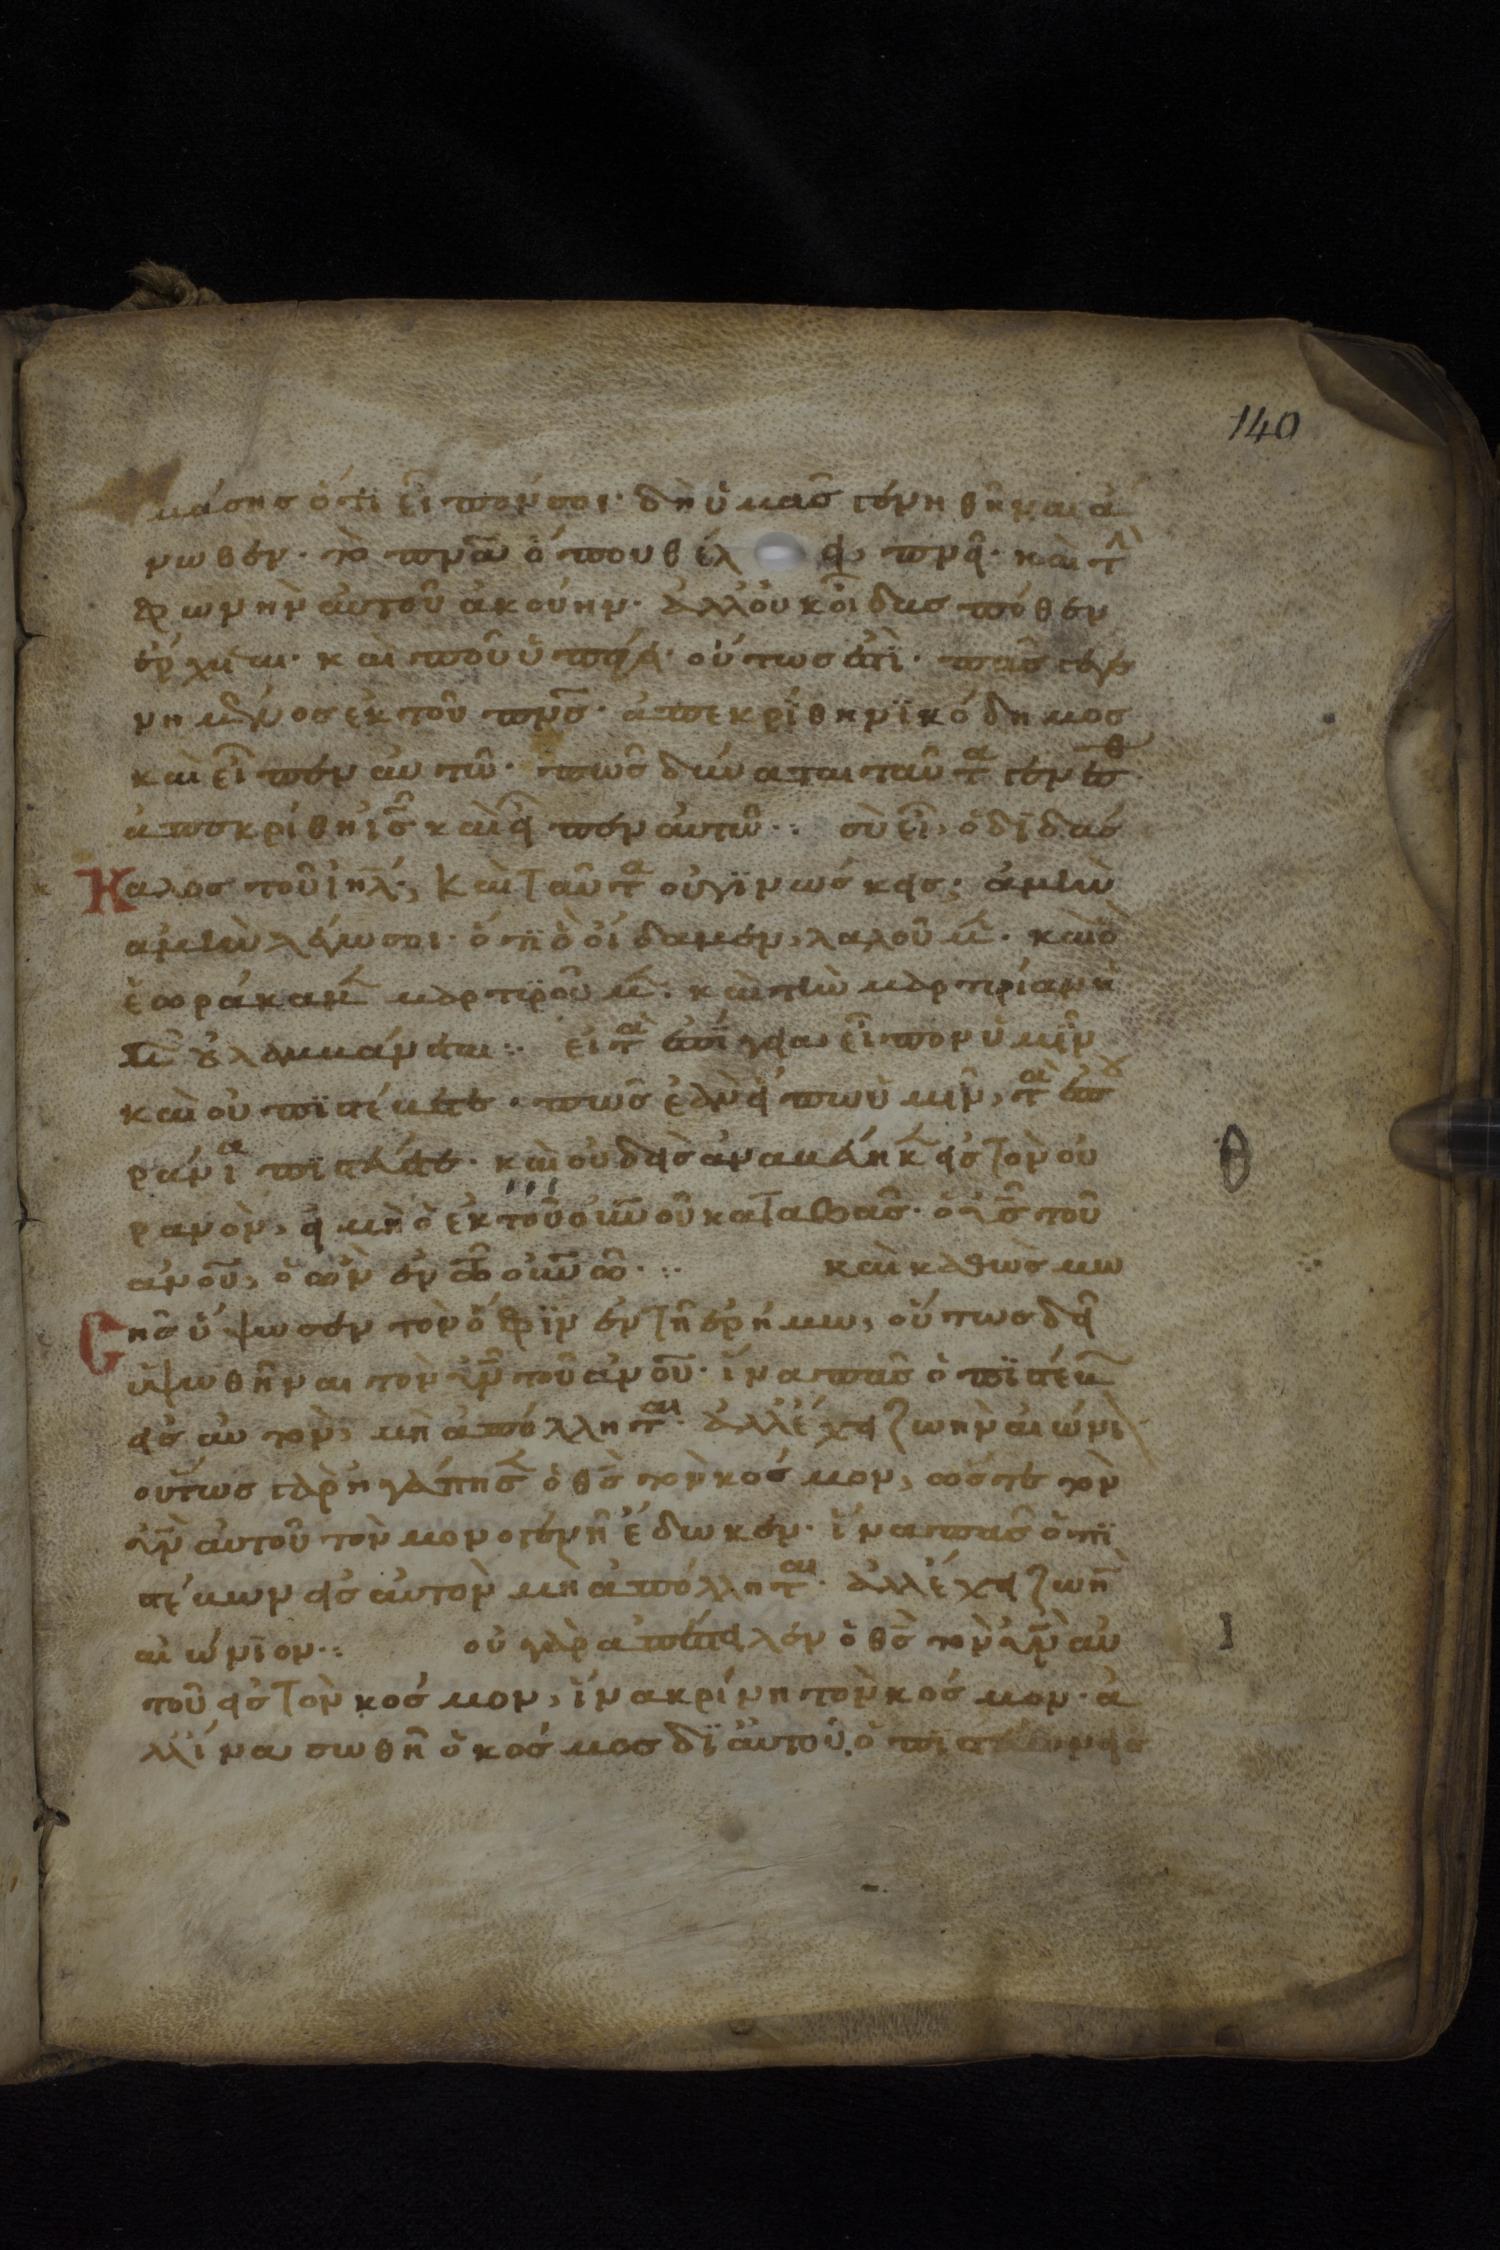 140
μάσης ὅτι εἶπόν σοι· δεῖ ὑμᾶς γενηθῆναι ἄ
νωθεν· τὸ πνᾶ ὅπου θέλει πνεῖ· καὶ τὴν
φωνὴν αὐτοῦ ἀκούην· ἀλλ' οὐκ οἶδας πόθεν
ἔρχεται· καὶ ποῦ ὑπάγει· οὕτως ἐστὶ· πᾶς ὁ γε
νημένος ἐκ τοῦ πνς· ἀπεκρίθη νϊκόδημος
καὶ εἶπεν αὐτῶ· πῶς δύναται ταῦτα γενέσθ
ἀπεκρίθη ἰς καὶ εἶπεν αὐτῶ·. σὺ εἶ, ὁ διδάσ
Καλος τοῦ ἰηλ, καὶ ταῦτα οὐ γϊνώσκεις; ἀμὴν
ἀμὴν λέγω σοι· ὅτι ὃ οἴδαμεν, λαλοῦμ· καὶ ὃ
ἑωράκαμ μαρτυροῦμ· καὶ τὴν μαρτυρίαν ἡ
μῶν οὐ λαμβάνεται·. εἰ τὰ ἐπίγεια εἶπον ὑμῖν
καὶ οὐ πϊστεύετε· πῶς ἐὰν εἴπω ὑμῖν, τὰ ἐπου
ράνια πϊστεύσετε· καὶ οὐδεὶς ἀναβέβηκ εἰς τὸν οὐ
ρανὸν, εἰ μὴ ὁ ἐκ τοῦ οὐνοῦ καταβᾶς· ὁ υἱς τοῦ
ἀνοῦ, ὁ ὢν ἐν τῶ οὐνῶ·. καὶ καθὼς μω
Cῆς ὕψωσεν τὸν ὄφϊν ἐν τῆ ἐρήμω, οὕτως δεῖ
ὑψωθῆναι τὸν υἱν τοῦ ἀνοῦ· ἵνα πᾶς ὁ πϊστεύων
εἰς αὐτὸν, μὴ ἀπόλληται· ἀλλ' ἔχει ζωὴν αἰώνι
οὕτως γὰρ ἠγάπησ ὁ θς τὸν κόσμον, ὥστε τὸν
υἱν αὐτοῦ τὸν μονογενῆ ἔδωκεν· ἵνα πᾶς ὁ πϊ
στεύων εἰς αὐτὸν μὴ ἀπόλληται· ἀλλ' ἔχει ζωὴν
αἰώνϊον·. οὐ γὰρ ἀπέστειλεν ὁ θς τὸν υἱν αὐ
τοῦ εἰς τὸν κόσμον, ἵνα κρίνη τὸν κόσμον· ἀ
λλ' ἵνα σωθῆ ὁ κόσμος δϊ αὐτοῦ, ὁ πϊστεύων εἰς
θ
ι